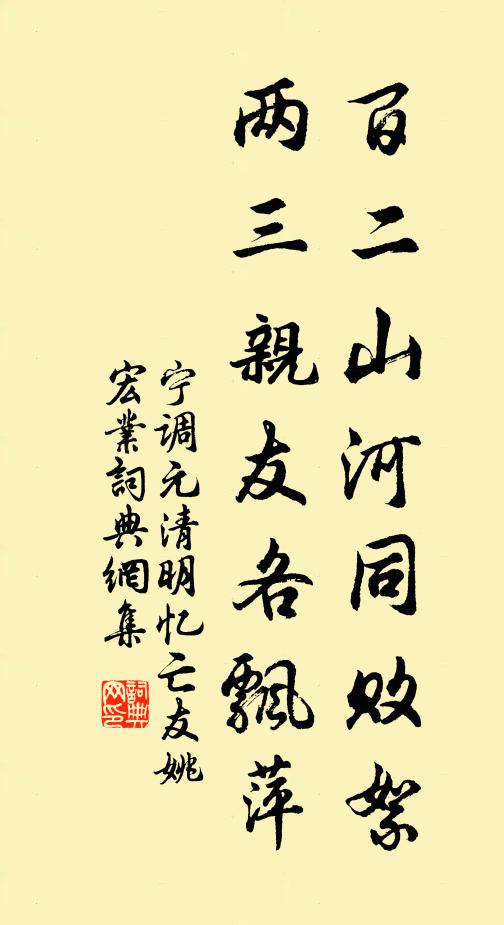 百二山河同败絮
两三親友各飄萍
宁调元清明忆亡友姚
宏業詞典網集
詞典网印